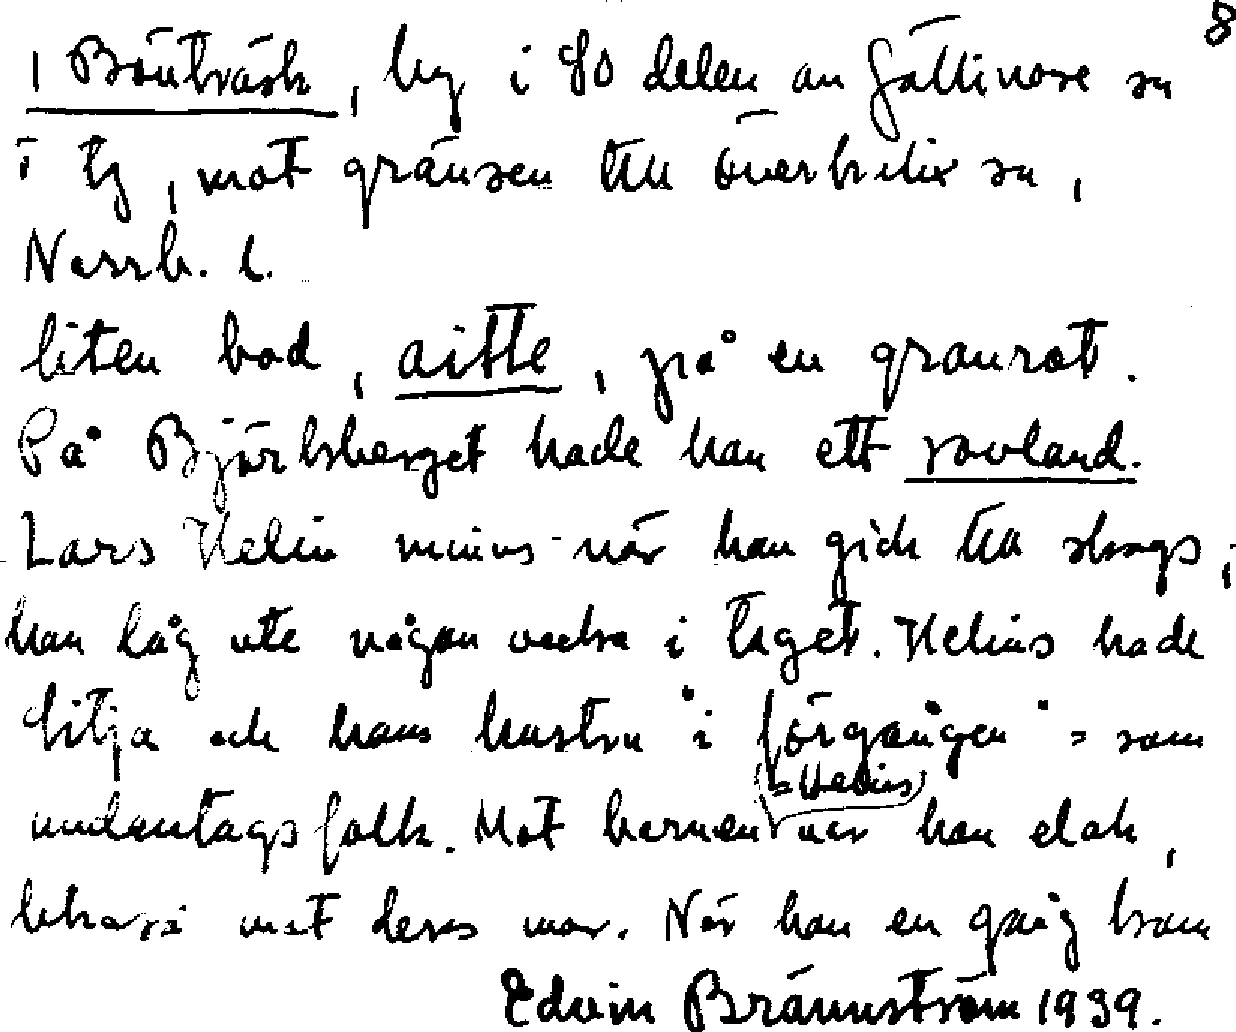 8
I Bönträsk, by i SO delen av Gällivare sn
i lg, mot gränsen till Överkalix sn,
Norrb. l.
liten bod, aitte, på en granrot.
På Björksberget hade han ett sovland.
Lars Helin minns när han gick till skogs,
han låg ute någon vecka i taget. Helins hade
Pilja och hans hustru "i förgången" = som
undantagsfolk. Mot barnen (= Helins) var han elak,
likaså mot deras mor. När han en gång kom
Edvin Brännström 1939.